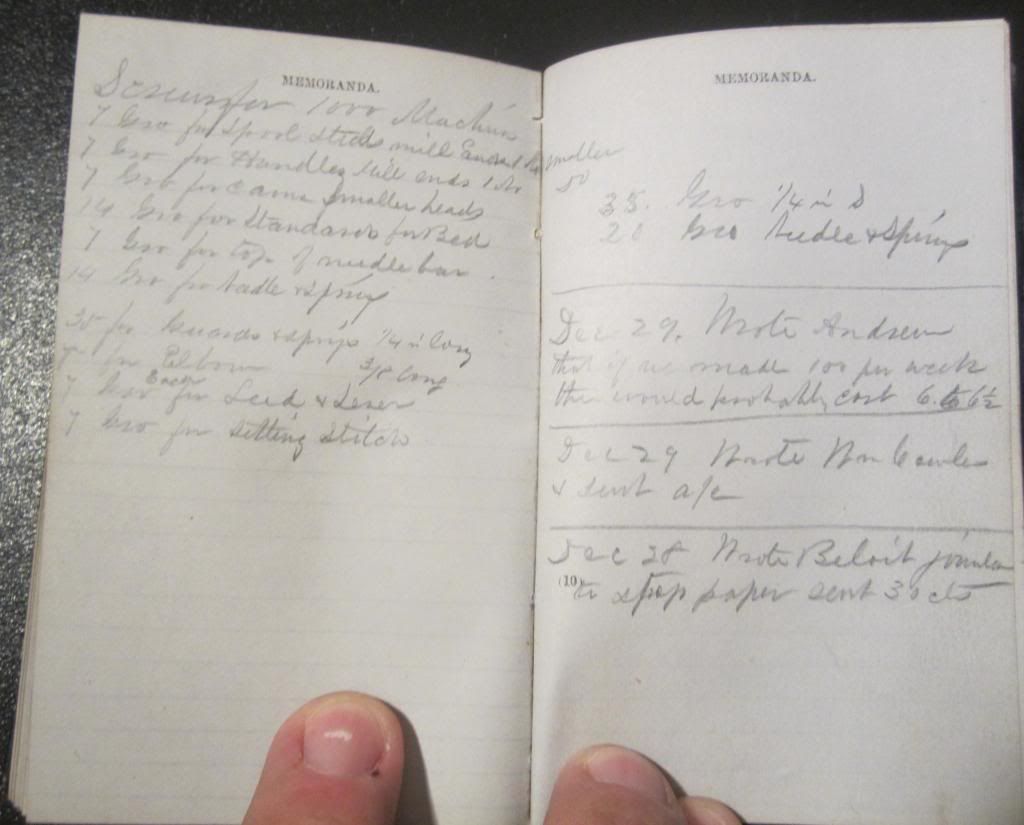 MEMORANDA.
Screws for 1000 Machin
7 Gro for Spool Studs mill ends 1
7 Gro for Handles Mill ends 1
7 Gro for Cams smaller heads
14 Gro for Standards for Bed
7 Gro for top of needle bar
14 Gro for needle & Spring
35 for Guards & Sprigs 1/4 in long
for Elbow 3/8 long
7 Gro Each for Feed & Lever
7 Gro for Setting Stitch
MEMORANDA.
smaller
50
35. Gro 1/4 in S
20 Gro Needle & Spring
Dec 29. Wrote Andrew
that if we made 100 per week
they would probably cost 6. to 6½
Dec 29 Wrote Wm Cowles
& sent a/c
Dec 28 Wrote Beloit journal
(10)
to stop paper sent 30 cts